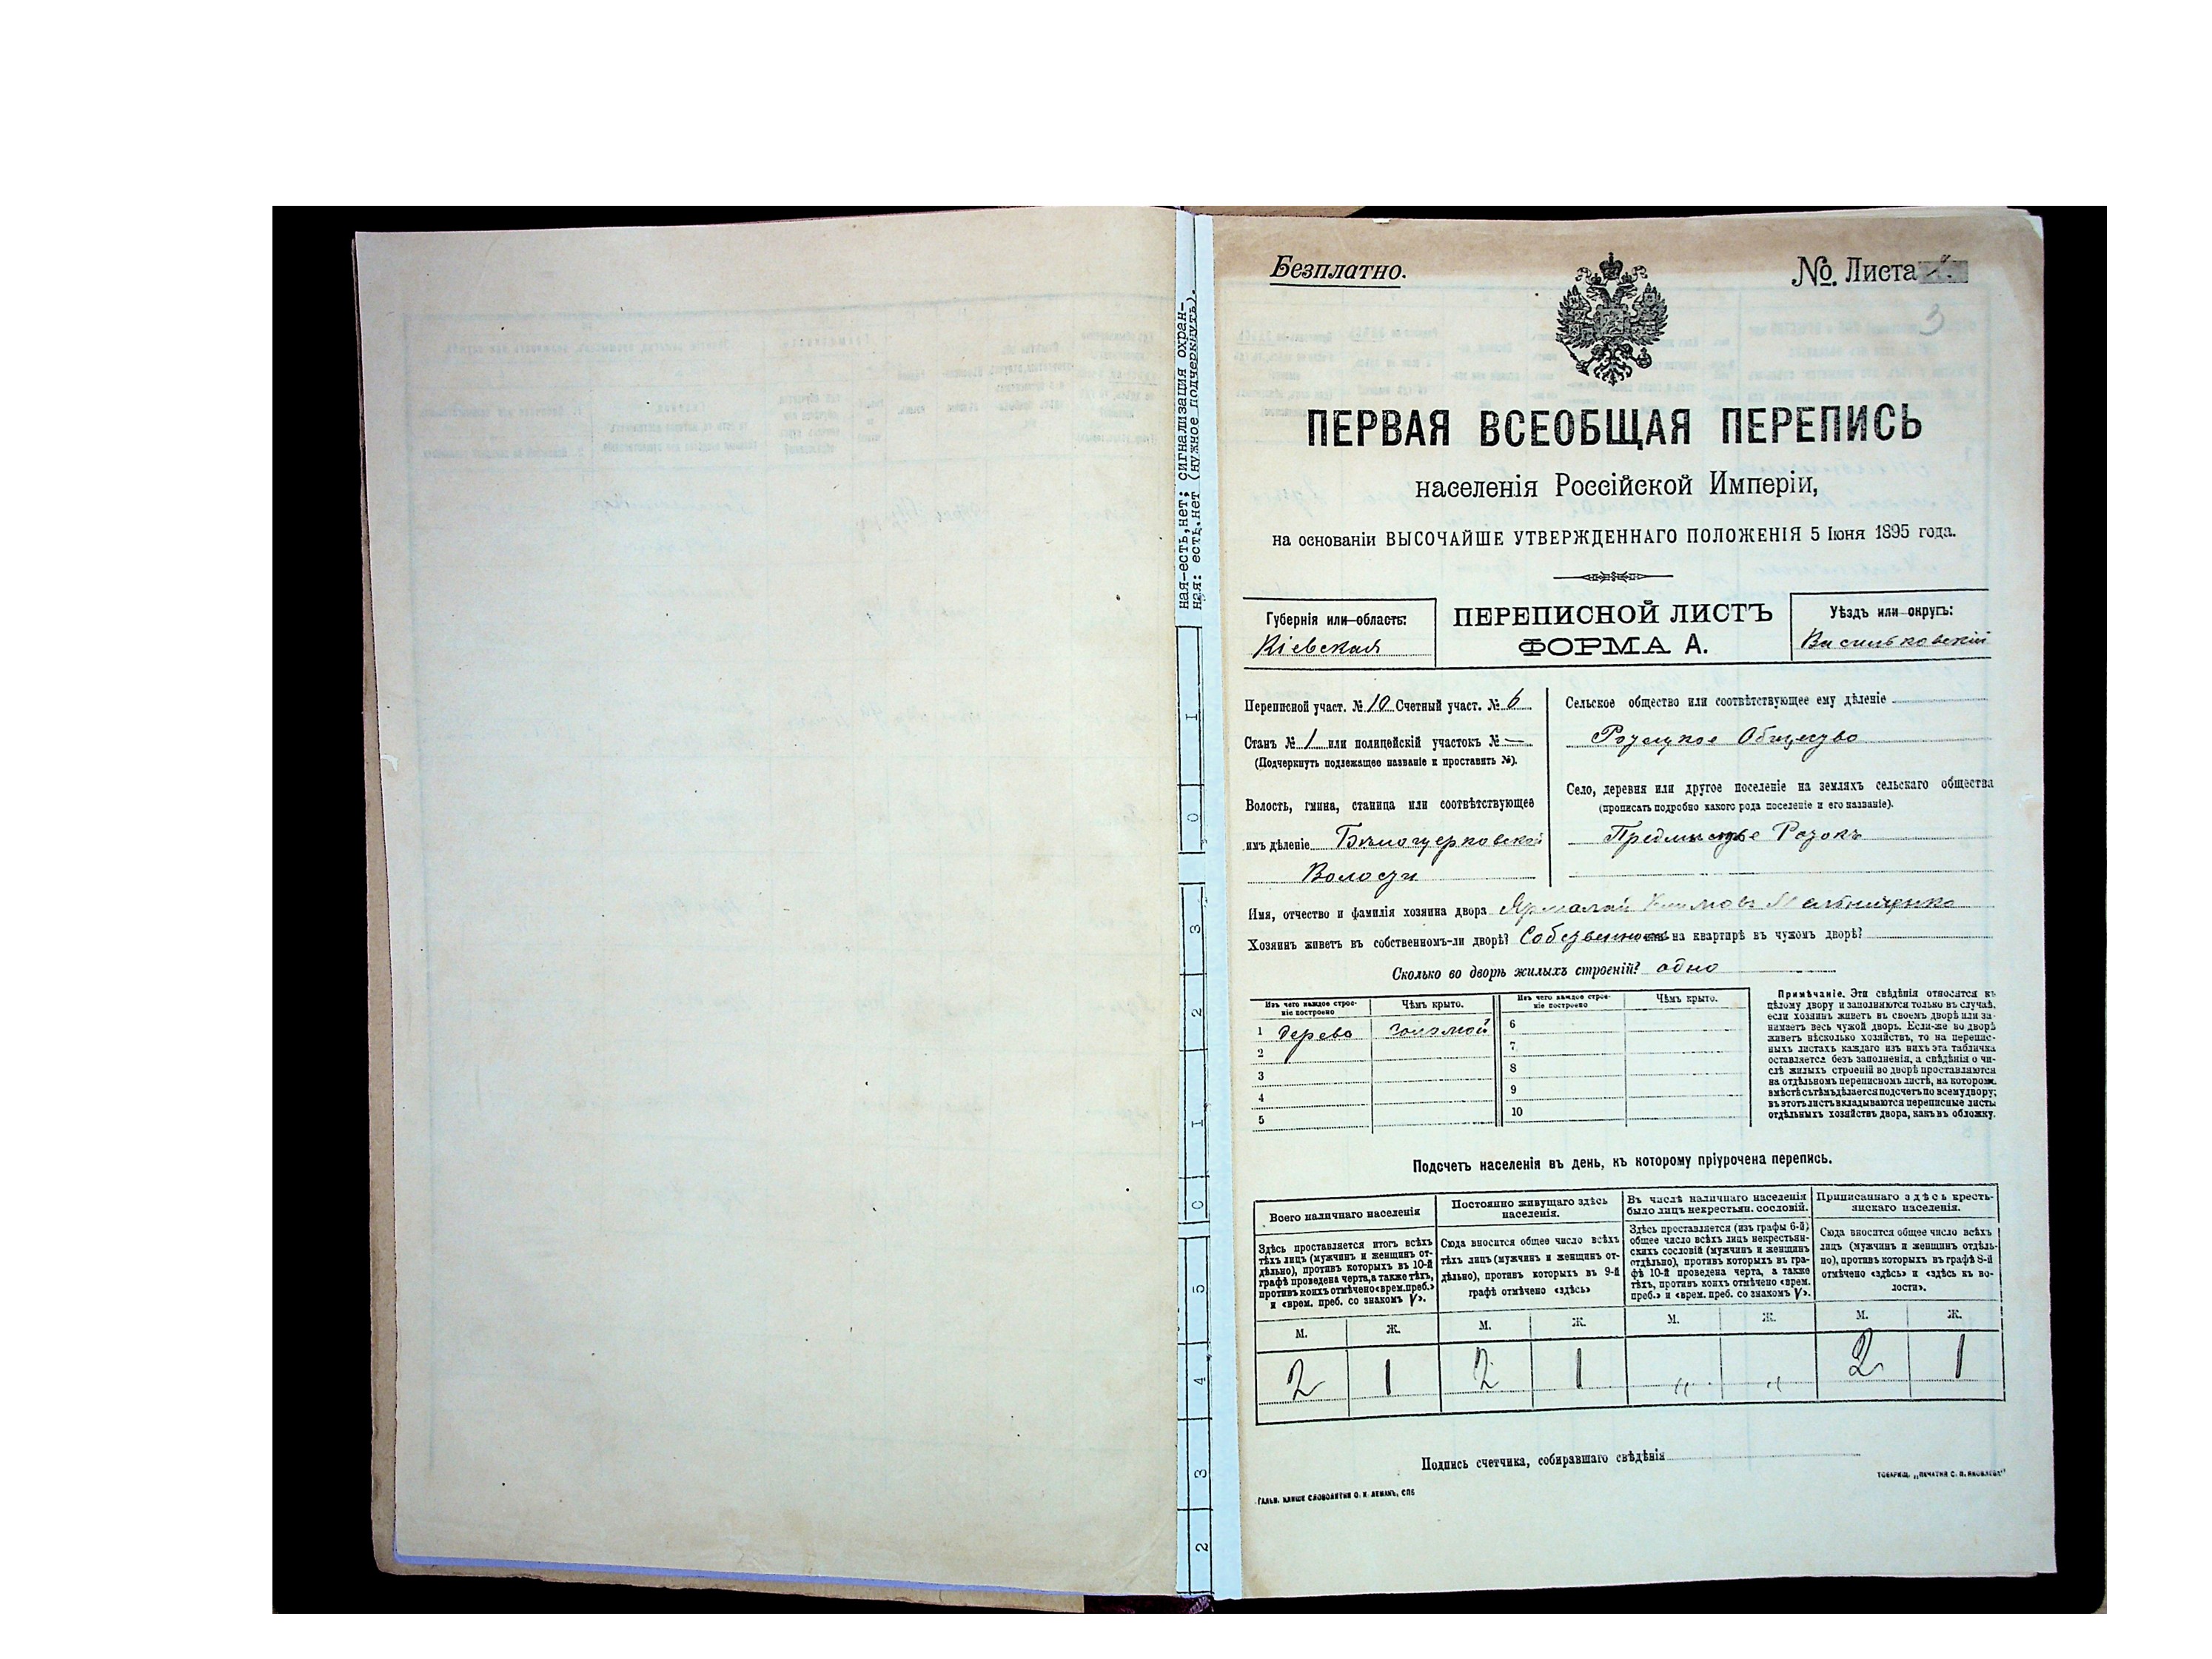 Безплатно.
№. Листа
3
ПЕРВАЯ ВСЕОБЩАЯ ПЕРЕПИСЬ
населенія Россійской Имперіи,
на основаніи ВЫСОЧАЙШЕ УТВЕРЖДЕННАГО ПОЛОЖЕНІЯ 5 Іюня 1895 года.
Губернія или область:
Кіевская
ПЕРЕПИСНОЙ ЛИСТЪ
ФОРМА А.
Уѣздъ или округъ:
Васильковскій
Переписной участ. № 10 Счетный участ. № 6
Станъ № 1 или полицейскій участокъ № —
(Подчеркнуть подлежащее названіе и проставить №).
Волость, гмина, станица или соотвѣтствующее
имъ дѣленіе Бѣлоцерковской
Волости
Сельское общество или соотвѣтствующее ему дѣленіе
Общество
Село, деревня или другое поселеніе на земляхъ сельскаго общества
(прописать подробно какого рода поселеніе и его названіе).
Предмѣстье Ротокъ
Имя, отчество и фамилія хозяина двора Ярмолай Климовъ Мельниченко
Хозяинъ живетъ въ собственномъ-ли дворѣ? или на квартирѣ въ чужомъ дворѣ?
Сколько во дворѣ жилыхъ строеній? одно
Изъ чего каждое строеніе построено
Чѣмъ крыто.
Изъ чего каждое строеніе построено
Чѣмъ крыто.
1 дерево соломой
2
3
4
5
6
7
8
9
10
Примѣчаніе. Эти свѣдѣнія относятся къ
цѣлому двору и заполняются только въ случаѣ,
если хозяинъ живетъ въ своемъ дворѣ или за-
нимаетъ весь чужой дворъ. Если-же во дворѣ
живетъ нѣсколько хозяйствъ, то на перепис-
ныхъ листахъ каждаго изъ нихъ эта табличка
оставляется безъ заполненія, а свѣдѣнія о чи-
слѣ жилыхъ строеній во дворѣ проставляются
на отдѣльномъ переписномъ листѣ, на которомъ
вмѣстѣ съ тѣмъ дѣлается подсчетъ по всему двору;
въ этотъ листъ вкладываются переписные листы
отдѣльныхъ хозяйствъ двора, какъ въ обложку.
Подсчетъ населенія въ день, къ которому пріурочена перепись.
Всего наличнаго населенія
Здѣсь проставляется итогъ всѣхъ
тѣхъ лицъ (мужчинъ и женщинъ от-
дѣльно), противъ которыхъ въ 10-й
графѣ проведена черта, а также тѣхъ,
противъ коихъ отмѣчено «врем. преб.»
и «врем. преб. со знакомъ V».
Постоянно живущаго здѣсь
населенія.
Сюда вносится общее число всѣхъ
тѣхъ лицъ (мужчинъ и женщинъ от-
дѣльно), противъ которыхъ въ 9-й
графѣ отмѣчено «здѣсь»
Въ числѣ наличнаго населенія
было лицъ некрестьян. сословій.
Здѣсь проставляется (изъ графы 6-й)
общее число всѣхъ лицъ некрестьян-
скихъ сословій (мужчинъ и женщинъ
отдѣльно), противъ которыхъ въ гра-
фѣ 10-й проведена черта, а также
тѣхъ, противъ коихъ отмѣчено «врем.
преб.» и «врем. преб. со знакомъ V».
Приписаннаго здѣсь кресть-
янскаго населенія.
Сюда вносится общее число всѣхъ
лицъ (мужчинъ и женщинъ отдѣль-
но), противъ которыхъ въ графѣ 8-й
отмѣчено «здѣсь» и «здѣсь къ во-
лости».
М. Ж. М. Ж. М. Ж. М. Ж.
2 1 2 1 " " 2 1
Подпись счетчика, собиравшаго свѣдѣнія
ГАЛЬВ. КЛИШЕ СЛОВОЛИТНИ О. И. ЛЕМАНЪ, СПБ
ТОВАРИЩ. „ПЕЧАТНЯ С. П. ЯКОВЛЕВА"
ная-есть,нет; сигнализация охран-
ная: есть,нет (нужное подчеркнуть).
I
0
3
2
I
0
5
4
3
2